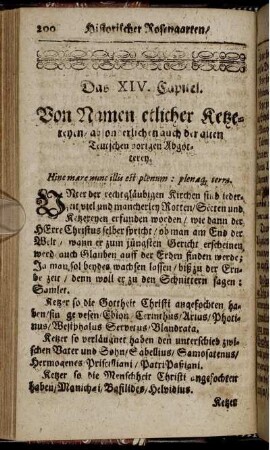 200 Historischer Rosengarten/
Das XIV. Capitel.
Von Namen etlicher Ketze-
reyen/ etlichen auch der alten
Teutschen vorigen Abgöt-
terey.
Hinc mare nunc illis est plenum: plenaq́; terra.
UNter der rechtgläubigen Kirchen sind jeder-
zeit viel und mancherley Rotten/ Secten und
Ketzereyen erfunden worden/ wie dann der
HErre Christus selber spricht/ ob man am End der
Welt/ wann er zum jüngsten Gericht erscheinen
werd/ auch Glauben auff der Erden finden werde:
Ja man sol beydes wachsen lassen/ biß zu der Ern-
de zeit/ denn woll er zu den Schnittern sagen:
Samlet.
Ketzer so die Gottheit Christi angefochten ha-
ben/ sin gewesen Ebion/ Cerinthus/ Arius/ Photi-
nus/ Westphalus Servetus/ Blandrata.
Ketzer so verläugnet haben den unterschied zwi-
schen Vater und Sohn/ Sabellius/ Samosatenus/
Hermogenes Priscilliani/ PatriPassiani.
Ketzer so die Menschheit Christi angefochten
haben/ Manichæi/ Basilides/ Helvidius.
Ketzer